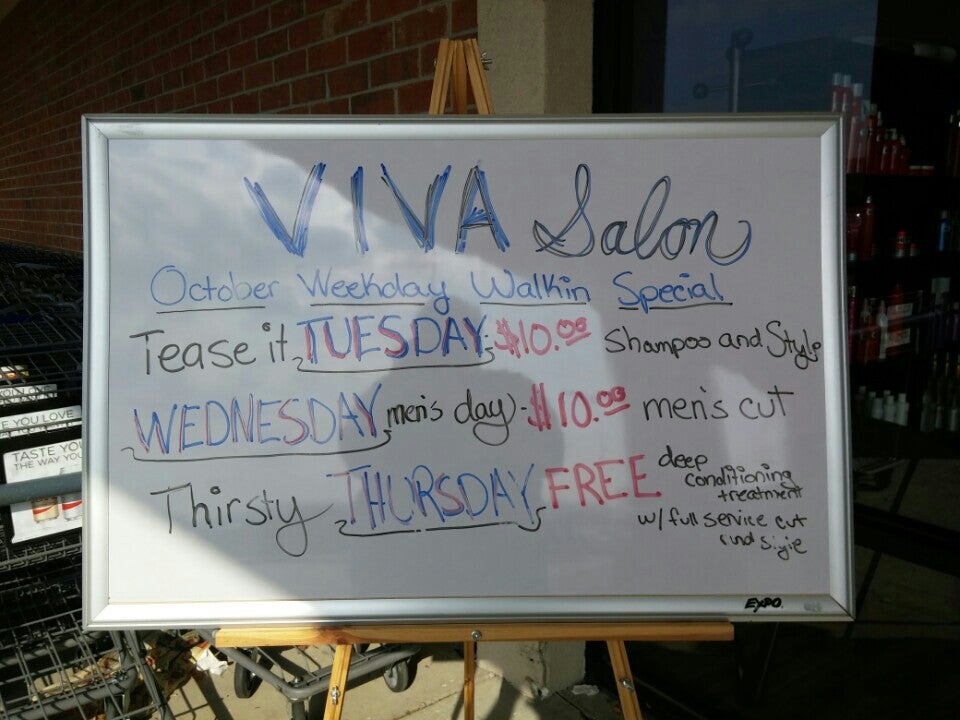 VIVA Salon
October Weekday Walkin Special
Tease it TUESDAY - $10.00 Shampoo and Style
WEDNESDAY men's day - $10.00 men's cut
Thirsty THURSDAY FREE deep
conditioning
treatment
w/ full service cut
and style
EXPO
E YOU LOVE
TASTE YOU
THE WAY YOU